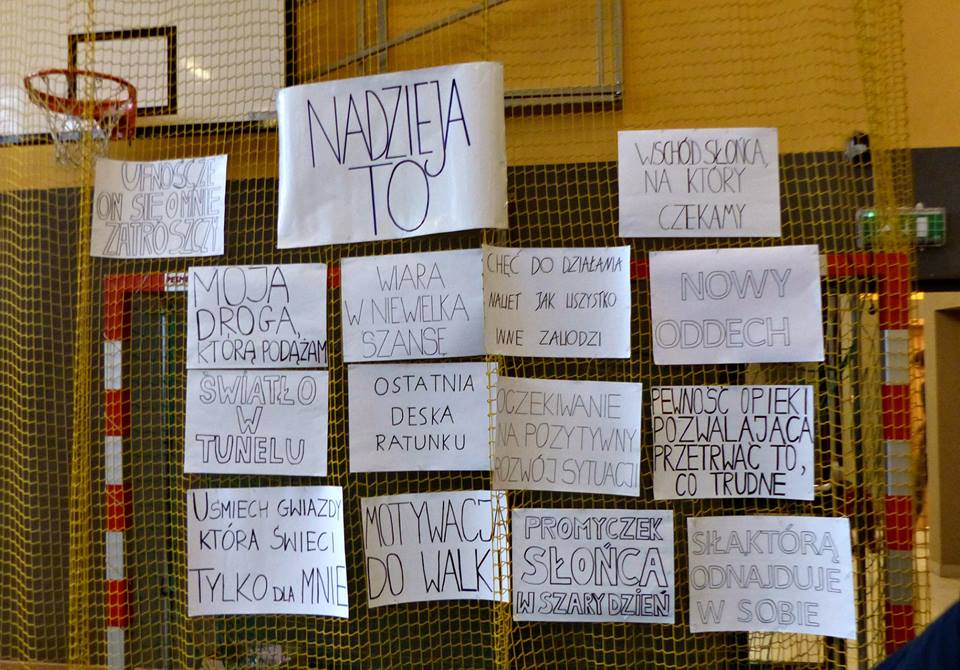 NADZIEJA
TO
UFNOŚĆ ŻE
ON SIĘ O MNIE
ZATROSZCZY
WSCHÓD SŁOŃCA,
NA KTÓRY
CZEKAMY
MOJA
DROGA,
KTÓRĄ PODĄŻAM
WIARA
W NIEWIELKA
SZANSĘ
CHĘĆ DO DZIAŁANIA
NAWET JAK WSZYSTKO
INNE ZAWODZI
NOWY
ODDECH
ŚWIATŁO
W
TUNELU
OSTATNIA
DESKA
RATUNKU
OCZEKIWANIE
NA POZYTYWNY
ROZWÓJ SYTUACJI
PEWNOŚĆ OPIEKI
POZWALAJĄCA
PRZETRWAĆ TO,
CO TRUDNE
UŚMIECH GWIAZDY
KTÓRA ŚWIECI
TYLKO DLA MNIE
MOTYWACJ
DO WALK
PROMYCZEK
SŁOŃCA
W SZARY DZIEŃ
SIŁA KTÓRĄ
ODNAJDUJE
W SOBIE